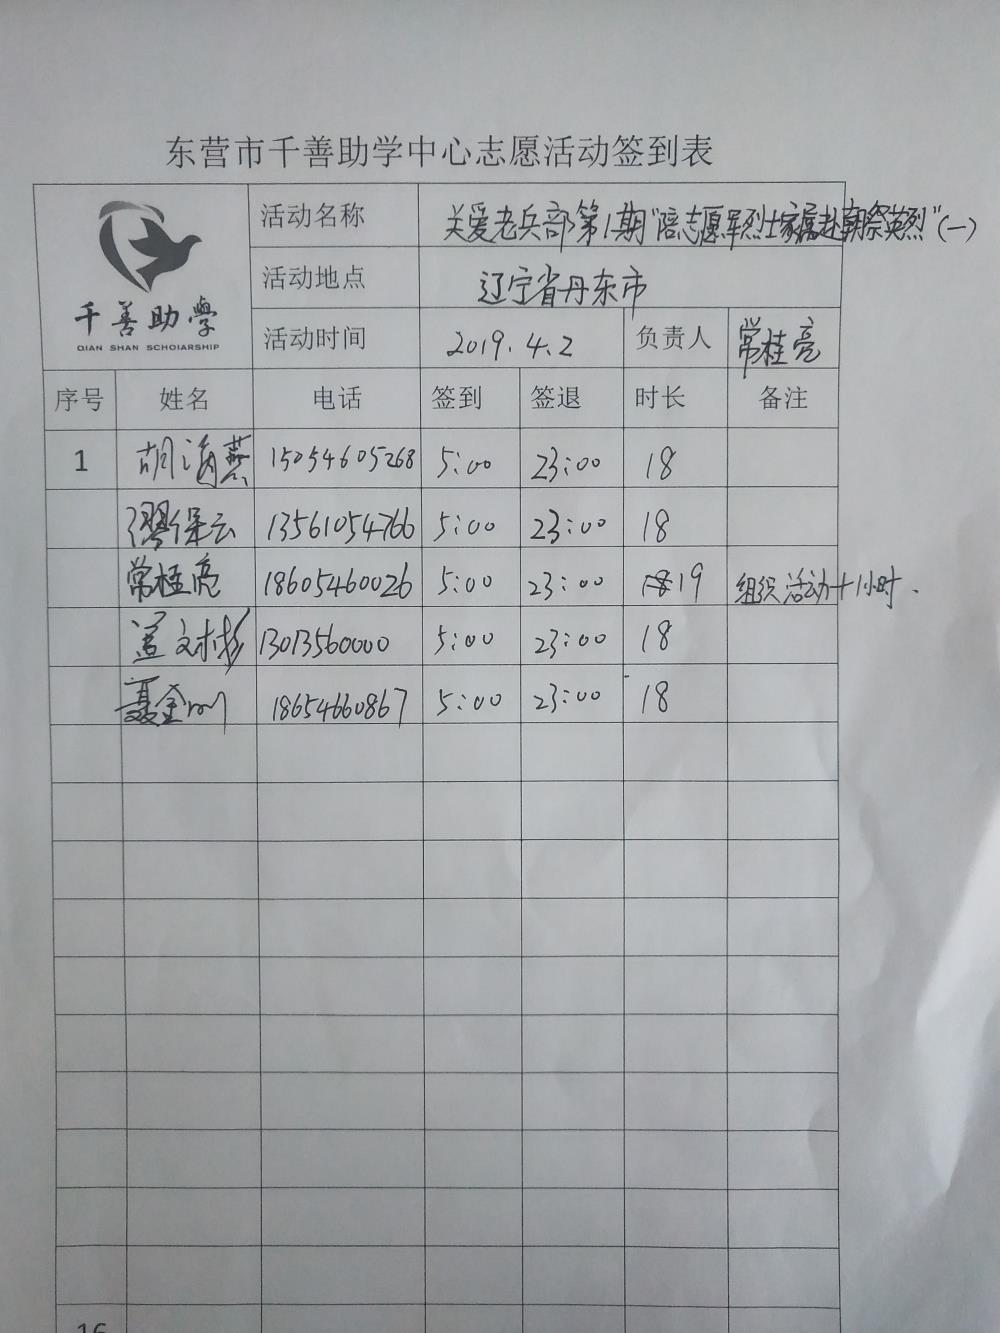 东营市千善助学中心志愿活动签到表
千善助學
QIAN SHAN SCHOIARSHIP
活动名称 关爱老兵部第1期"陪志愿军烈士家属赴朝祭英烈"(一)
活动地点 辽宁省丹东市
活动时间 2019.4.2 负责人 常桂亮
序号 姓名 电话 签到 签退 时长 备注
1 胡海燕 15054605268 5:00 23:00 18
缪保云 13561054766 5:00 23:00 18
常桂亮 18605460026 5:00 23:00 19 组织活动+1小时.
盖文彬 13013560000 5:00 23:00 18
聂金刚 18654660867 5:00 23:00 18
16